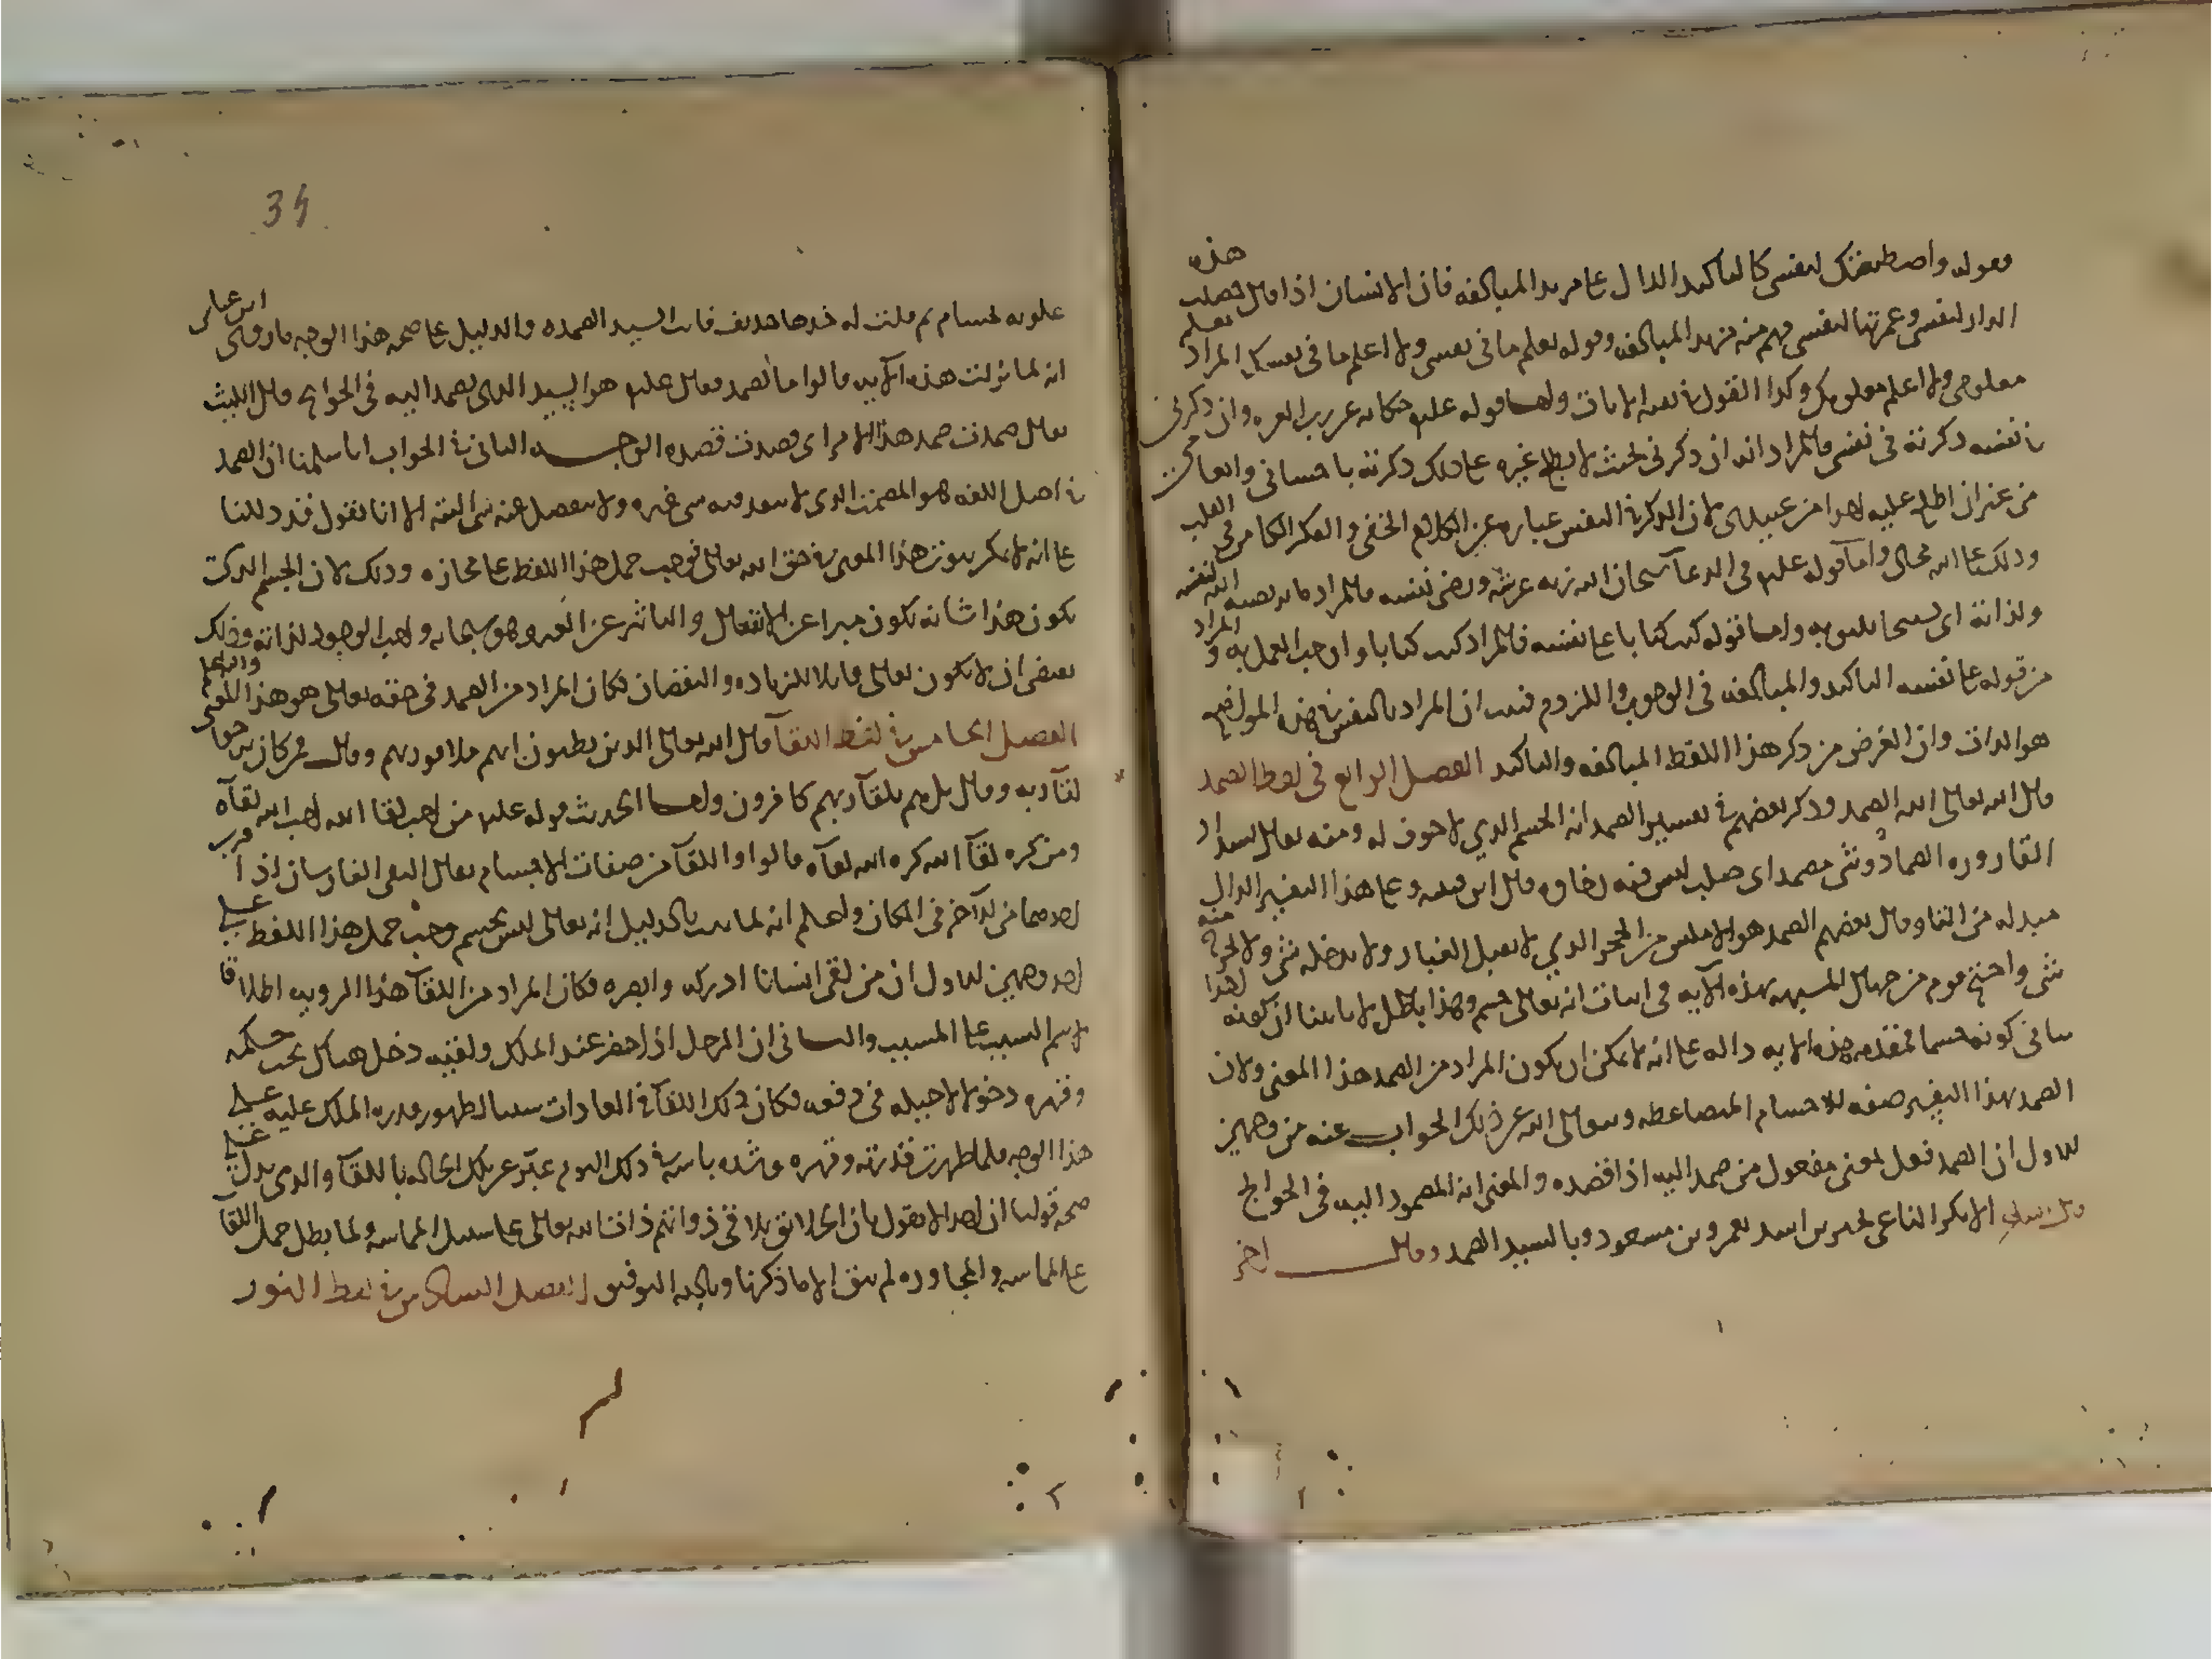 فقوله واصطنعتك لنفسى كالتاكيد الدال على مزيد المبالغه فان الانسان اذا قال جعلت هذه
الدار لنفسى وعمرتها لنفسى فهم منه مزيد المبالغه وقوله تعلم ما فى نفسى ولا اعلم ما فى نفسك المراد تعلم
معلومى ولا اعلم معلومك وكذا القول فى بقيه الايات واما قوله عليه حكايه عن رب العزه وان ذكرنى
فى نفسه ذكرته فى نفسى فالمراد انه ان ذكرنى بحيث لا يطلع غيره على ذلك ذكرته باحسانى وانعامى
من غير ان اطلع عليه احدا من عبيدى لان الذكر فى النفس عباره عن الكلام الخفى والفكر الكامن فى القلب
وذلك على الله محال واما قوله عليه فى الدعا سبحان الله زنه عرشه ورضى نفسه فالمراد ما يرتضيه الله لنفسه
ولذاته اى تسبيحا يليق به واما قوله كتب كتابا على نفسه فالمراد كتب كتابا واوجب العمل به و المراد
من قوله على نفسه التاكيد والمبالغه فى الوجوب واللزوم فثبت ان المراد بالنفس فى هذه المواضع
هو الذات وان الغرض من ذكر هذا اللفظ المبالغه والتاكيد الفصل الرابع فى لفظ الصمد
قال الله تعالى الله الصمد وذكر بعضهم فى تفسير الصمد انه الجسم الذي لا جوف له ومنه يقال لسداد
القاروره الصماد وشى مصمد اى صلب ليس فيه رخاوه قال ابن قتيبه وعلى هذا التفسير الدال
مبدله من التا وقال بعضهم الصمد هو الاملس من الحجر الذي لا يقبل الغبار ولا يدخله شى ولا يخرج منه
شى واحتج قوم من جهال المشبهه بهذه الآيه فى اثبات انه تعالى جسم وهذا باطل لانا بينا ان كونه احدا
ينافى كونه جسما فمقدمه هذه الايه داله على انه لا يمكن ان يكون المراد من الصمد هذا المعنى ولان
الصمد بهذا التفسير صفه للاجسام المتضاغطه وتعالى الله عن ذلك الجواب عنه من وجهين
الاول ان الصمد فعل بمعنى مفعول من صمد اليه اذا قصده والمعنى انه المصمود اليه فى الحوايج
قال الشاعر الا بكر الناعى بخير بنى اسد بعمرو بن مسعود وبالسيد الصمد وقال اخر
34
علوته بحسام ثم قلت له خذها حذيف فانت السيد الصمده والدليل على صحه هذا الوجه ما روى ابن عباس
انه لما نزلت هذه الآيه قالوا ما الصمد فقال عليه هو السيد الذى يصمد اليه فى الحوايج قال الليث
يقال صمدت صمد هذا الامر اى قصدت قصده الوجه الثانى فى الجواب انا سلمنا ان الصمد
فى اصل اللغه هو المصمت الذى لا يدخل فيه شى غيره ولا ينفصل عنه شى البته الا انا نقول قد دللنا
على انه لا يمكن ثبوت هذا المعنى فى حق الله تعالى فوجب حمل هذا اللفظ على مجازه وذلك لان الجسم الذى
يكون هذا شانه يكون مبرا عن الانفعال والتاثر عن الغير وهو سبحانه واجب الوجود لذاته وذلك
يقتضى ان لا يكون تعالى قابلا للزياده والنقصان فكان المراد من الصمد فى حقه تعالى هو هذا المعنى والله اعلم
الفصل الخامس فى لفظ اللقآ قال الله تعالى الذين يظنون انهم ملاقوا ربهم وقال فمن كان يرجوا
لقآ ربه وقال بل هم بلقآ ربهم كافرون واما الحديث قوله عليه من احب لقا الله احب الله لقآه
ومن كره لقآ الله كره الله لقآه قالوا واللقآ من صفات الاجسام يقال التقى الفارسان اذا قرب
احدهما من الآخر فى المكان واعلم انه لما ثبت بالدليل انه تعالى ليس بجسم وجب حمل هذا اللفظ على
احد وجهين الاول ان من لقى انسانا ادركه وابصره فكان المراد من اللقآ هذا الرويه اطلاقا
لاسم السبب على المسبب والثانى ان الرجل اذا حضر عند الملك ولقيه دخل هناك تحت حكمه
وقهره دخولا لا حيله فى دفعه فكان ذلك اللقآ فى العادات سببا لظهور قدره الملك عليه على
هذا الوجه فلما ظهرت قدرته وقهره وشده باسه فى ذلك اليوم عبّر عن تلك الحاله باللقآ والذى يدل على
صحه قولنا ان احدا لا يقول بان الخلايق تلاقى ذواتهم ذات الله تعالى على سبيل المماسه ولما بطل حمل اللقآ
على المماسه والمجاوره لم يبق الا ما ذكرنا وبالله التوفيق الفصل السادس فى لفظ النور